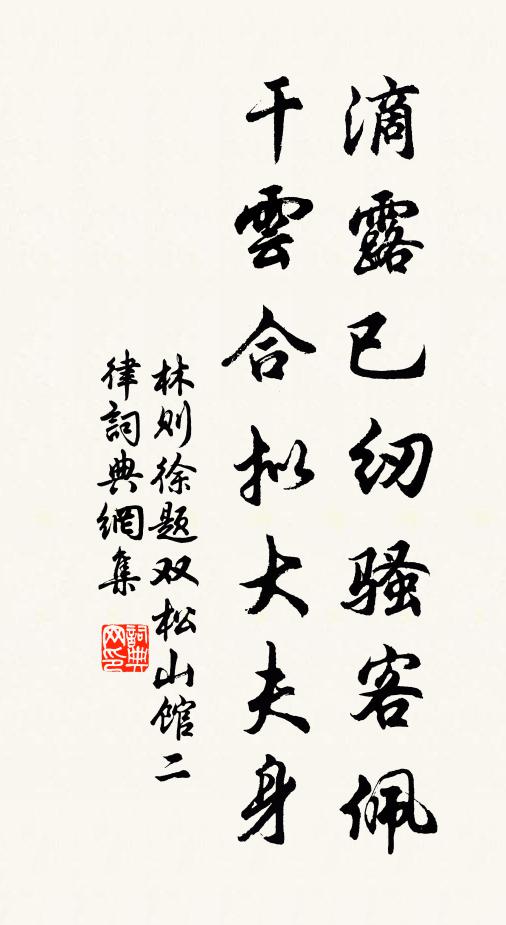 滴露已紉騷客佩
干雲合拟大夫身
林则徐题双松山馆二
律詞典網集
詞典
网印